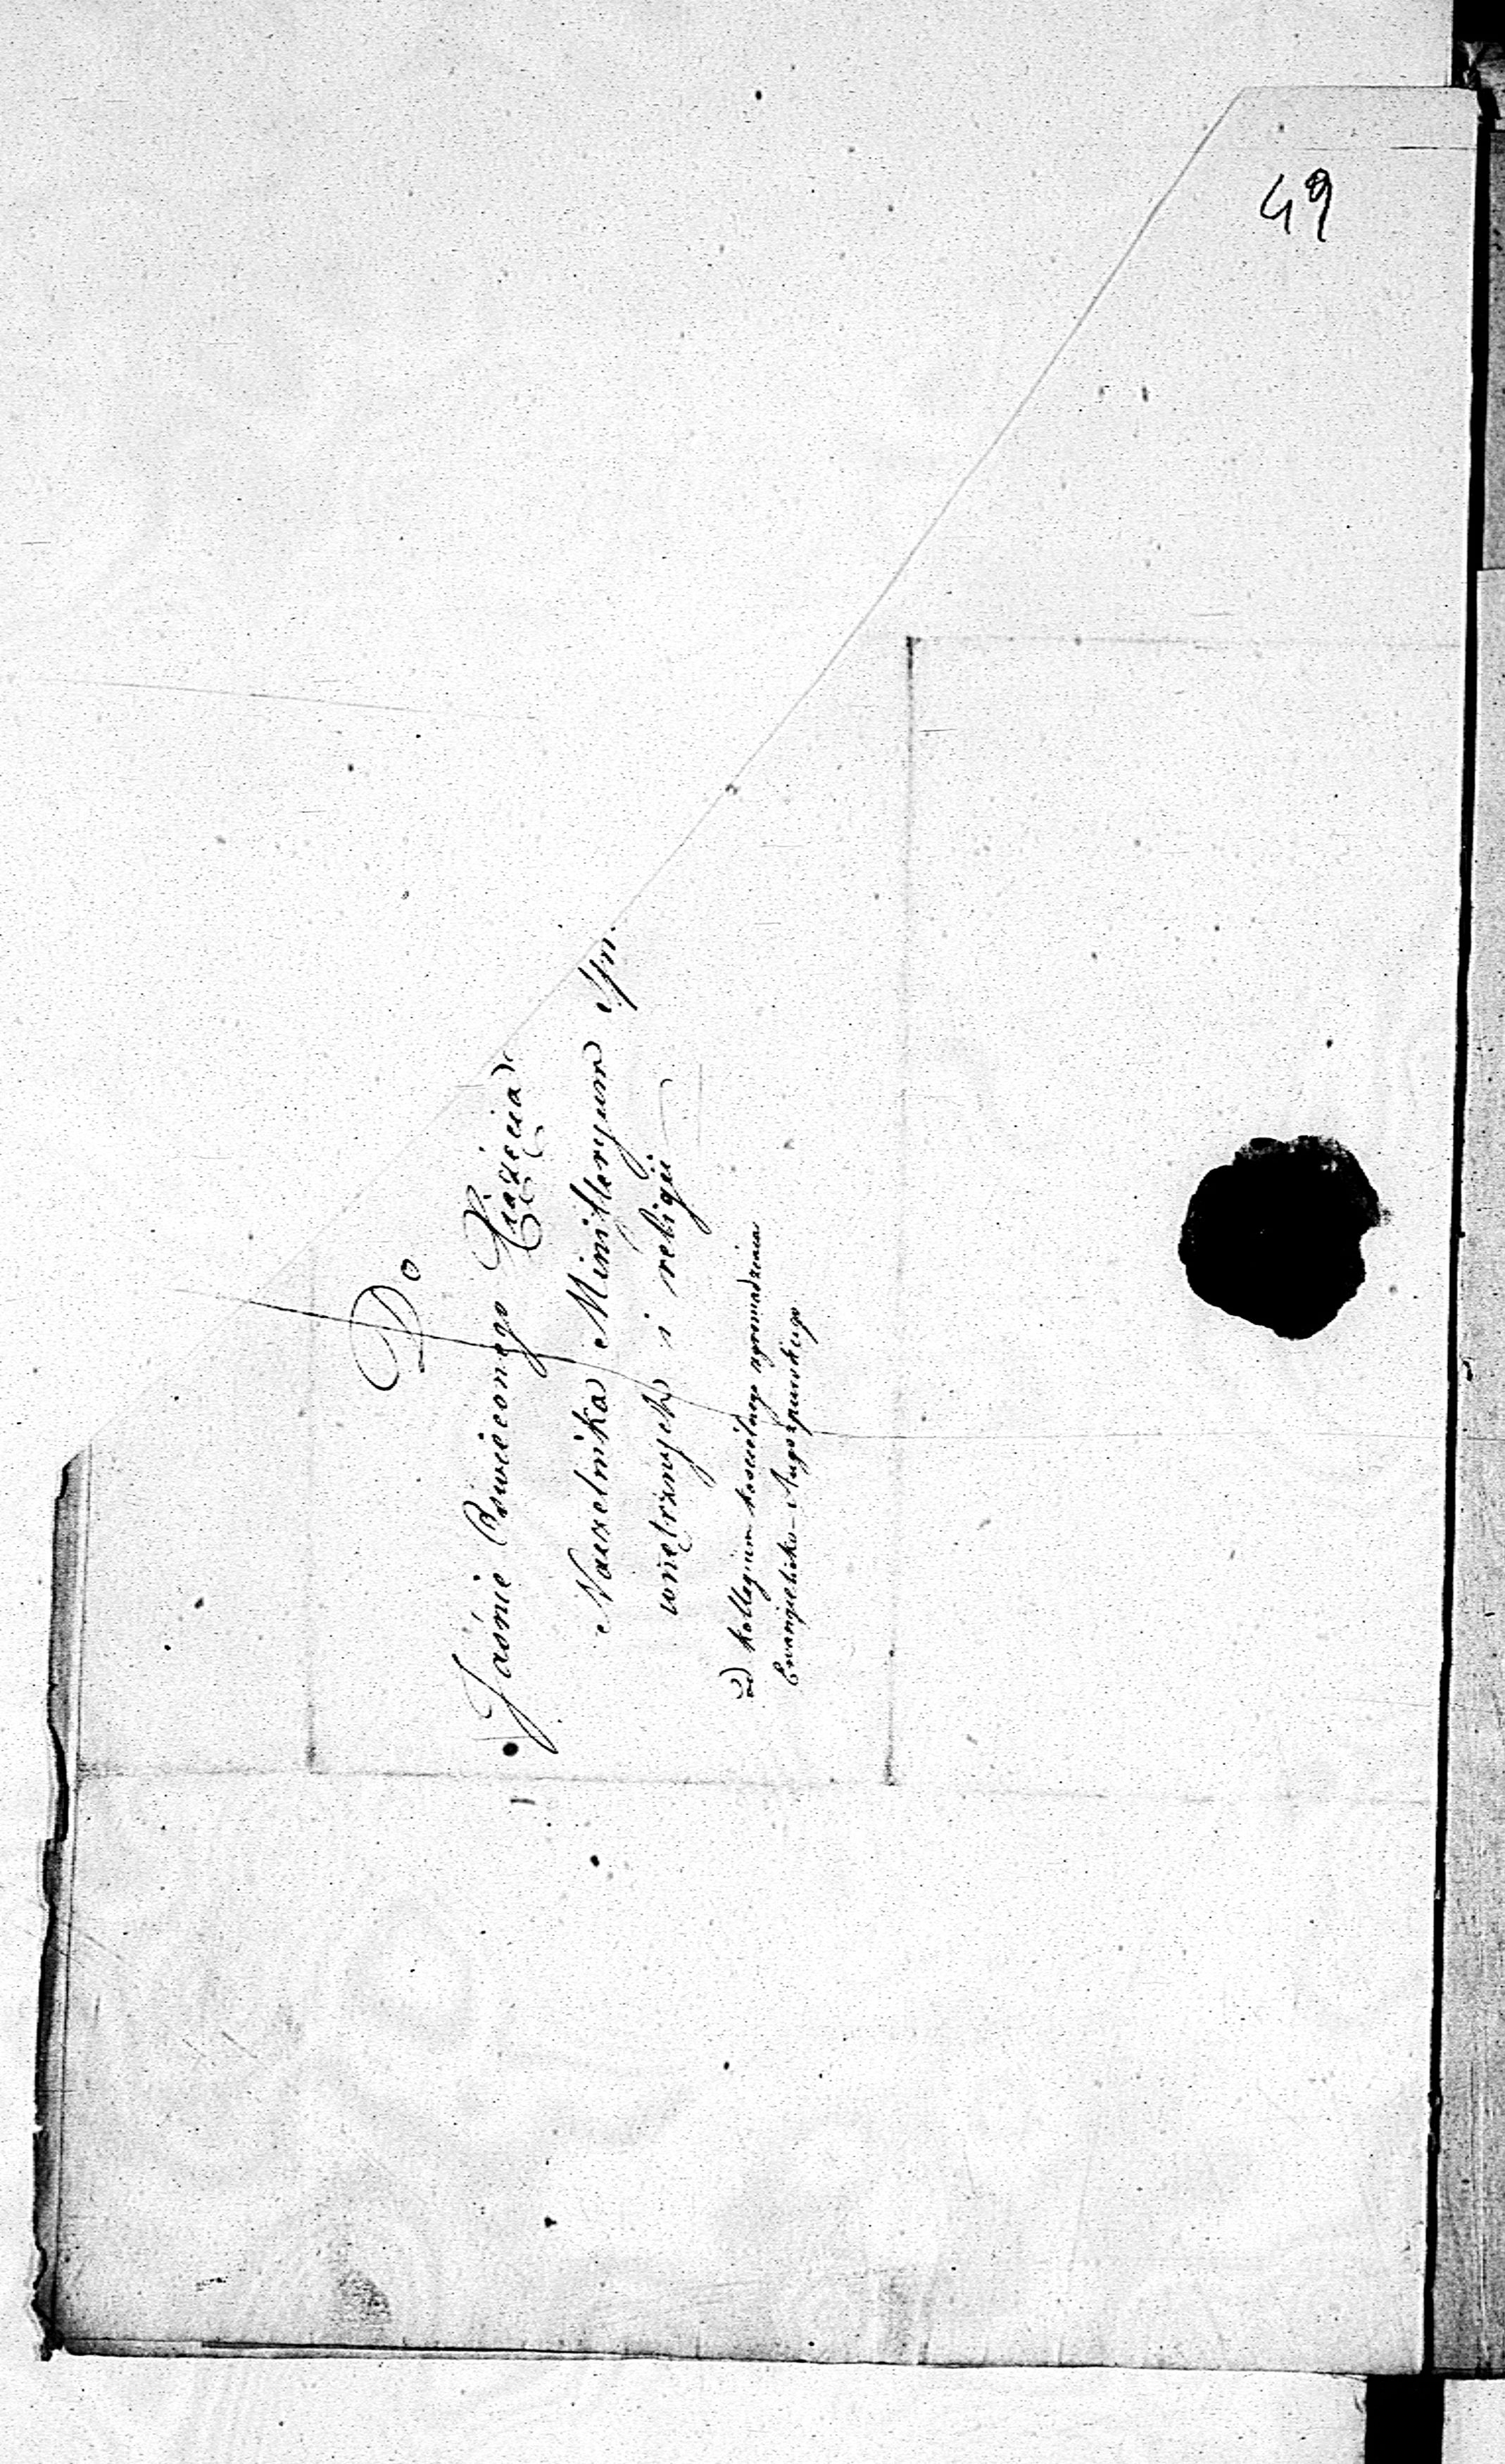 49
Do
Jaśnie Oswieconego Xiążęcia
Naczelnika Ministeryum Spr:
wnętrznych i religii
Kollegium koscielnego zgromadzenia
Ewangelicko-Augszpurskiego